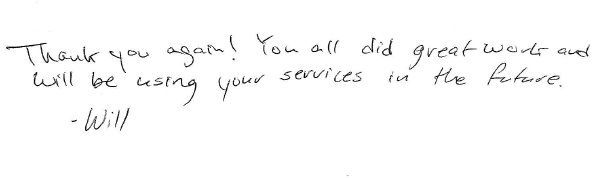 Thank you again! You all did great work and
will be using your services in the future.
-Will